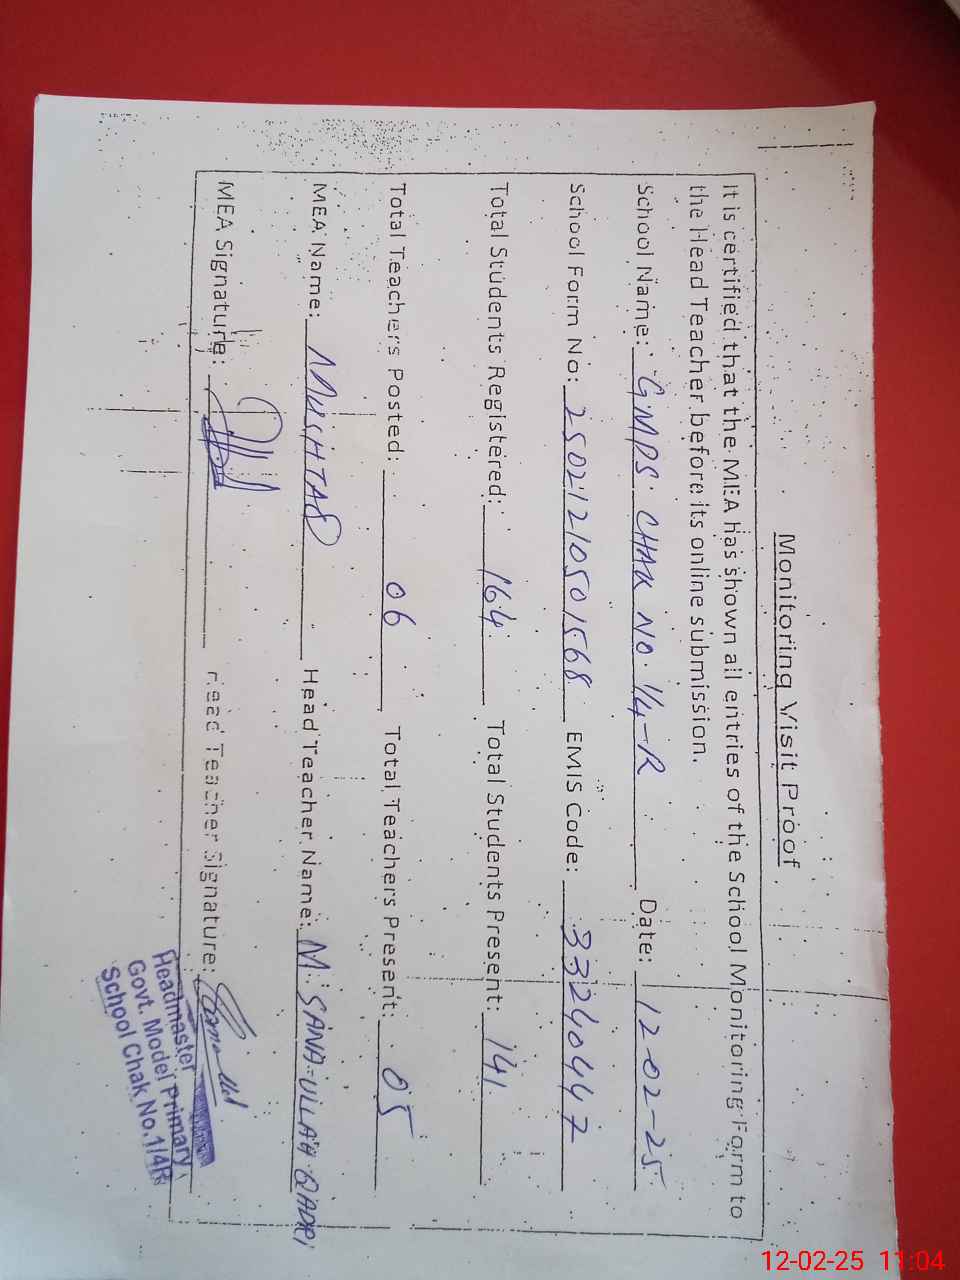 Monitoring Visit Proof
It is certified that the MEA has shown all entries of the School Monitoring Form to
the Head Teacher before its online submission.
School Name: GMPS CHAK NO. 1/4-R Date: 12-02-25
School Form No: 25021210501568 EMIS Code: 33240447
Total Students Registered: 164 Total Students Present: 141
Total Teachers Posted: 06 Total Teachers Present: 05
MEA Name: MUSHTAQ Head Teacher Name: M. SANA-ULLAH QADRI
MEA Signature: Head Teacher Signature:
Headmaster
Govt. Model Primary
School Chak No.1/4R
12-02-25 11:04